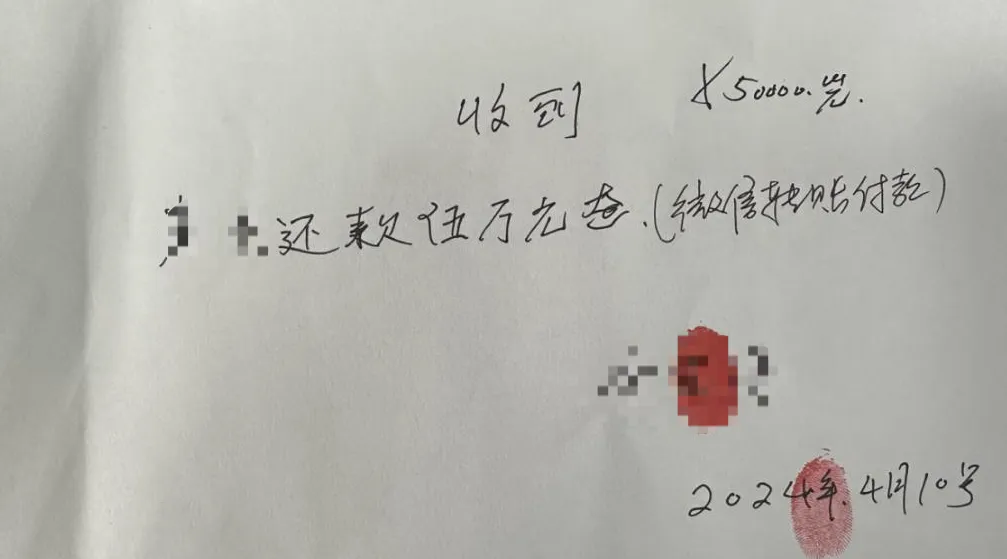 收到 ¥50000.岁.
还款伍万元整.(微信转账付款)
2024年.4月10号